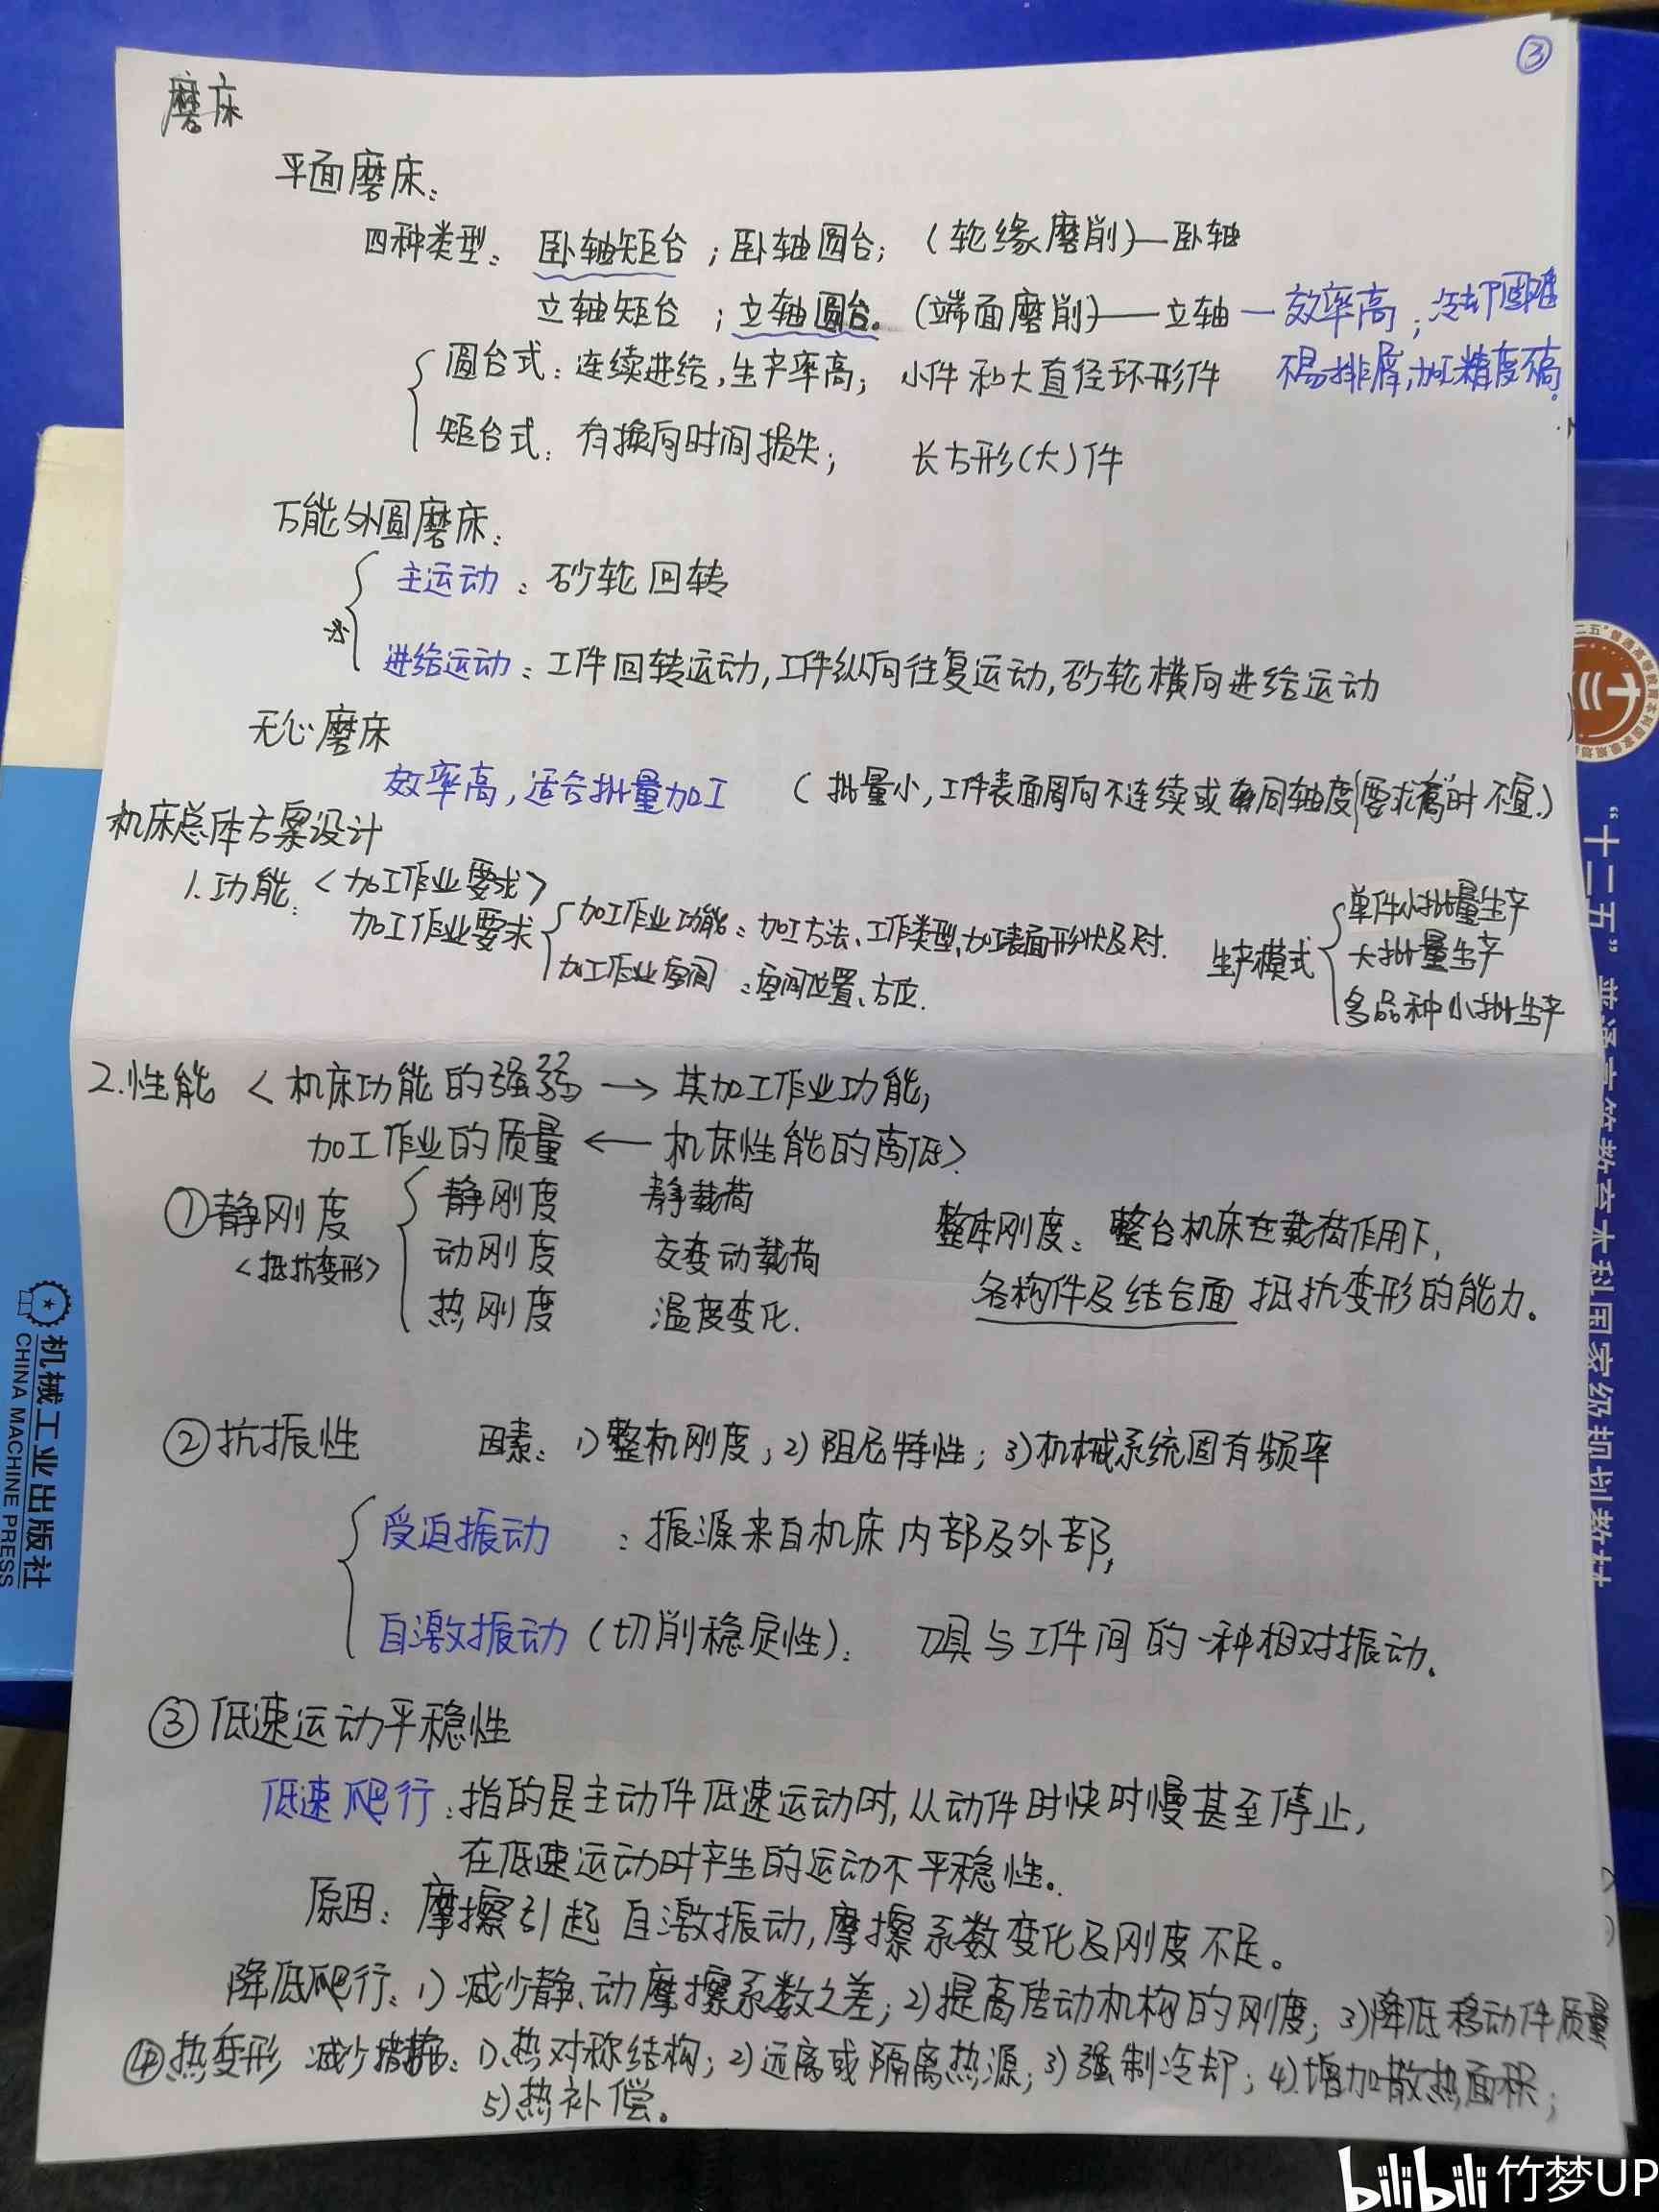 ③
磨床
平面磨床:
四种类型: 卧轴矩台;卧轴圆台; (轮缘磨削)—卧轴
立轴矩台;立轴圆台。(端面磨削)—立轴—效率高;冷却困难
圆台式:连续进给,生产率高; 小件和大直径环形件 不易排屑,加工精度不高。
矩台式:有换向时间损失; 长方形(大)件
万能外圆磨床:
主运动:砂轮回转
进给运动:工件回转运动,工件纵向往复运动,砂轮横向进给运动
无心磨床
效率高,适合批量加工 (批量小,工件表面周向不连续或 同轴度要求高时不宜.)
机床总体方案设计
1.功能:<加工作业要求>
加工作业要求 加工作业功能:加工方法、工作类型,加工表面形状及尺寸.
加工作业空间:空间位置、方位.
生产模式 单件小批量生产
大批量生产
多品种小批生产
2.性能 <机床功能的强弱→其加工作业功能;
加工作业的质量←机床性能的高低>
①静刚度 静刚度 静载荷
<抵抗变形> 动刚度 交变动载荷
热刚度 温度变化.
整体刚度:整台机床在载荷作用下,
各构件及结合面抵抗变形的能力。
②抗振性 因素:1)整机刚度;2)阻尼特性;3)机械系统固有频率
受迫振动 :振源来自机床内部及外部,
自激振动(切削稳定性): 刀具与工件间的一种相对振动。
③低速运动平稳性
低速爬行:指的是主动件低速运动时,从动件时快时慢甚至停止,
在低速运动时产生的运动不平稳性。
原因:摩擦引起自激振动,摩擦系数变化及刚度不足。
降低爬行:1)减少静、动摩擦系数之差;2)提高传动机构的刚度;3)降低移动件质量
④热变形 减少措施:1)热对称结构;2)远离或隔离热源;3)强制冷却;4)增加散热面积;
5)热补偿。
机械工业出版社
CHINA MACHINE PRESS
“十二五”普通高等教育本科国家级规划教材
bilibili 竹梦UP